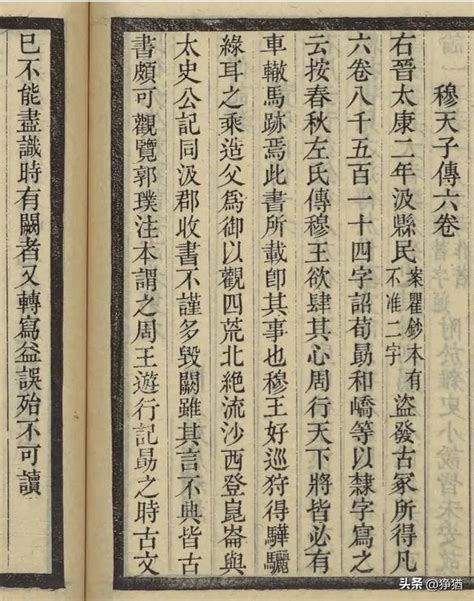 穆天子傳六卷
右晉太康二年汲縣民案瞿鈔本有不准二字盜發古冢所得凡
六卷八千五百一十四字詔荀勗和嶠等以隸字寫之
云按春秋左氏傳穆王欲肆其心周行天下將皆必有
車轍馬跡焉此書所載卽其事也穆王好巡狩得驊騮
綠耳之乘造父爲御以觀四荒北絶流沙西登崑崙與
太史公記同汲郡收書不謹多毀闕雖其言不典皆古
書頗可觀覽郭璞注本謂之周王遊行記勗之時古文
已不能盡識時有闕者又轉寫益誤殆不可讀
头条 @猙猶